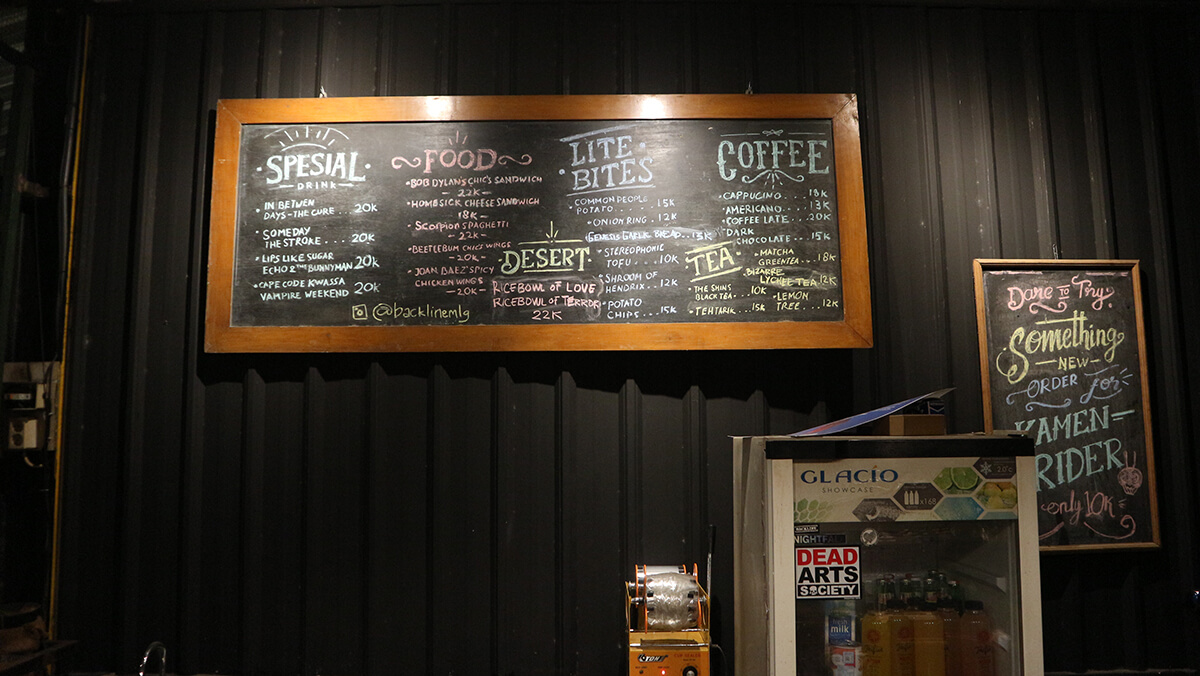 SPESIAL
DRINK
IN BETWEN
DAYS - THE CURE ... 20K
SOMEDAY
THE STROKE .... 20K
LIPS LIKE SUGAR
ECHO & THE BUNNYMAN 20K
CAPE CODE KWASSA
VAMPIRE WEEKEND 20K
@backlinemlg
FOOD
BOB DYLAN'S CHIC'S SANDWICH
- 22K -
HOMESICK CHEESE SANDWICH
- 18K -
SCORPION SPAGHETTI
- 22K -
BEETLEBUM CHIC'S WINGS
- 20K -
JOAN BAEZ' SPICY
CHICKEN WINGS
- 20K -
DESERT
RICEBOWL OF LOVE
RICEBOWL OF TERROR
22K
LITE
BITES
COMMON PEOPLE
POTATO ... 15K
ONION RING . 12K
GENESIS GARLIC BREAD ... 13K
STEREOPHONIC
TOFU .... 10K
SHROOM OF
HENDRIX .. 12K
POTATO
CHIPS ... 15K
COFFEE
CAPPUCINO .. 18K
AMERICANO ... 13K
COFFEE LATE ... 20K
DARK
CHOCOLATE ... 15K
TEA
MATCHA
GREENTEA ... 18K
BIZARRE
LYCHEE TEA 12K
THE SHINS
BLACK TEA ... 10K
LEMON
TREE ... 12K
TEHTARIK ... 15K
Dare to Try
Something
NEW
ORDER for
KAMEN-
RIDER
only 10K
GLACIO
SHOWCASE
x168
NIGHTFALL
DEAD
ARTS
SOCIETY
fresh
milk
CUP SEALER